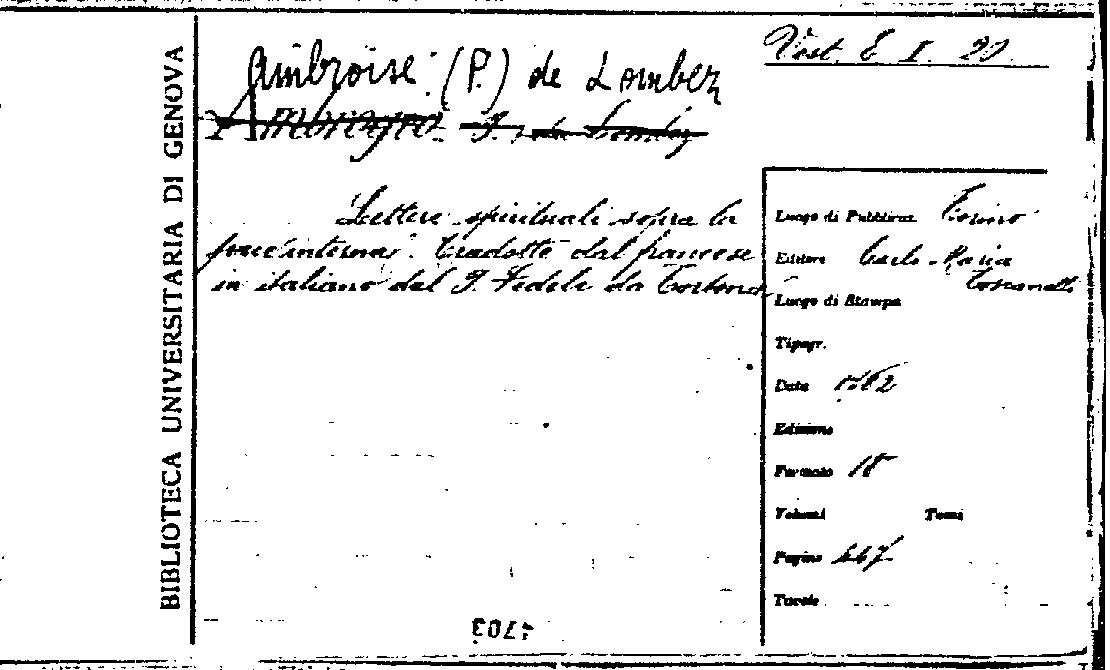 BIBLIOTECA UNIVERSITARIA DI GENOVA
Vast. E I. 20
Ambroise (P.) de Lombez
Ambrogio P. da Lombez
Lettere spirituali sopra la
pace interna. Tradotte dal francese
in italiano dal P. Fedele da Tortona
Luogo di Pubblicaz. Torino
Editore Carlo Maria
Toscanelli
Luogo di Stampa
Tipogr.
Data
Edizione
Formato 18
Volumi Tomi
Pagine
Tavole
1703